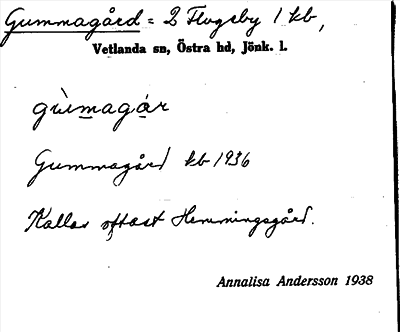 Gummagård = 2 Flugeby 1 kb,
Vetlanda sn, Östra hd, Jönk. l.
gùmagár
Gummagård kb 1936
Kallas oftast Hemmingsgård.
Annalisa Andersson 1938